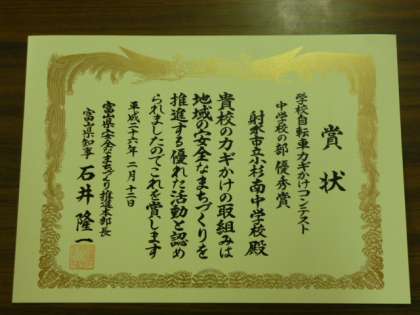 賞状
学校自転車カギかけコンテスト
中学校の部 優秀賞
射水市立小杉南中学校殿
貴校のカギかけの取組みは
地域の安全なまちづくりを
推進する優れた活動と認め
られましたのでこれを賞します
平成二十六年二月十二日
富山県安全なまちづくり推進本部長
富山県知事 石井隆一